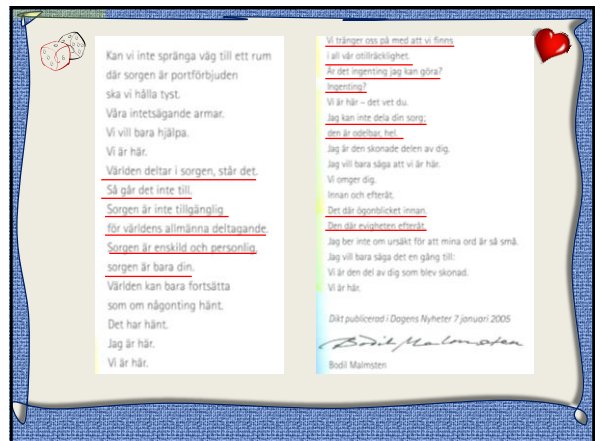 Kan vi inte spränga väg till ett rum
där sorgen är portförbjuden
ska vi hålla tyst.
Våra intetsägande armar.
Vi vill bara hjälpa.
Vi är här.
Världen deltar i sorgen, står det.
Så går det inte till.
Sorgen är inte tillgänglig
för världens allmänna deltagande.
Sorgen är enskild och personlig,
sorgen är bara din.
Världen kan bara fortsätta
som om någonting hänt.
Det har hänt.
Jag är här.
Vi är här.
Vi tränger oss på med att vi finns
i all vår otillräcklighet.
Är det ingenting jag kan göra?
Ingenting?
Vi är här – det vet du.
Jag kan inte dela din sorg;
den är odelbar, hel.
Jag är den skonade delen av dig.
Jag vill bara säga att vi är här.
Vi omger dig.
Innan och efteråt.
Det där ögonblicket innan.
Den där evigheten efteråt.
Jag ber inte om ursäkt för att mina ord är så små.
Jag vill bara säga det en gång till:
Vi är den del av dig som blev skonad.
Vi är här.
Dikt publicerad i Dagens Nyheter 7 januari 2005
Bodil Malmsten
Bodil Malmsten